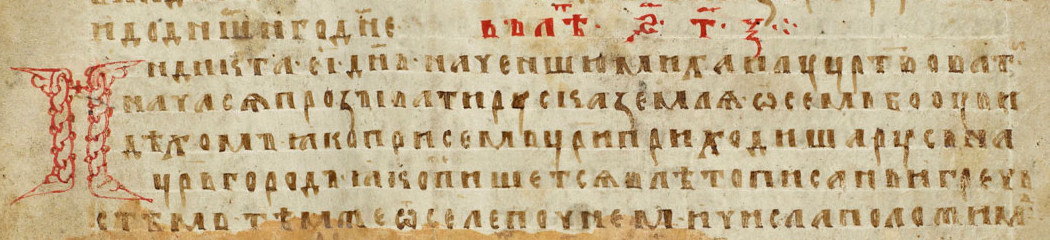 идодн҃шнѧгодн҃е вълѣт҃ ҂ѕ҃·т҃·ѯ҃·
Индикта·еі҃·дн҃ь·наченшюмихаилуцр҃твоват·
начасѧпрозъıватирусказемлѧ·ѡсемьбооувѣ
дѣхомъꙗкоприсемьцр҃иприходишарусьна
цр҃ьгородъ·ꙗкопишетсѧвлѣтописаньигречь
стѣмь·тѣмжеѿселепочнем·ичислаположим